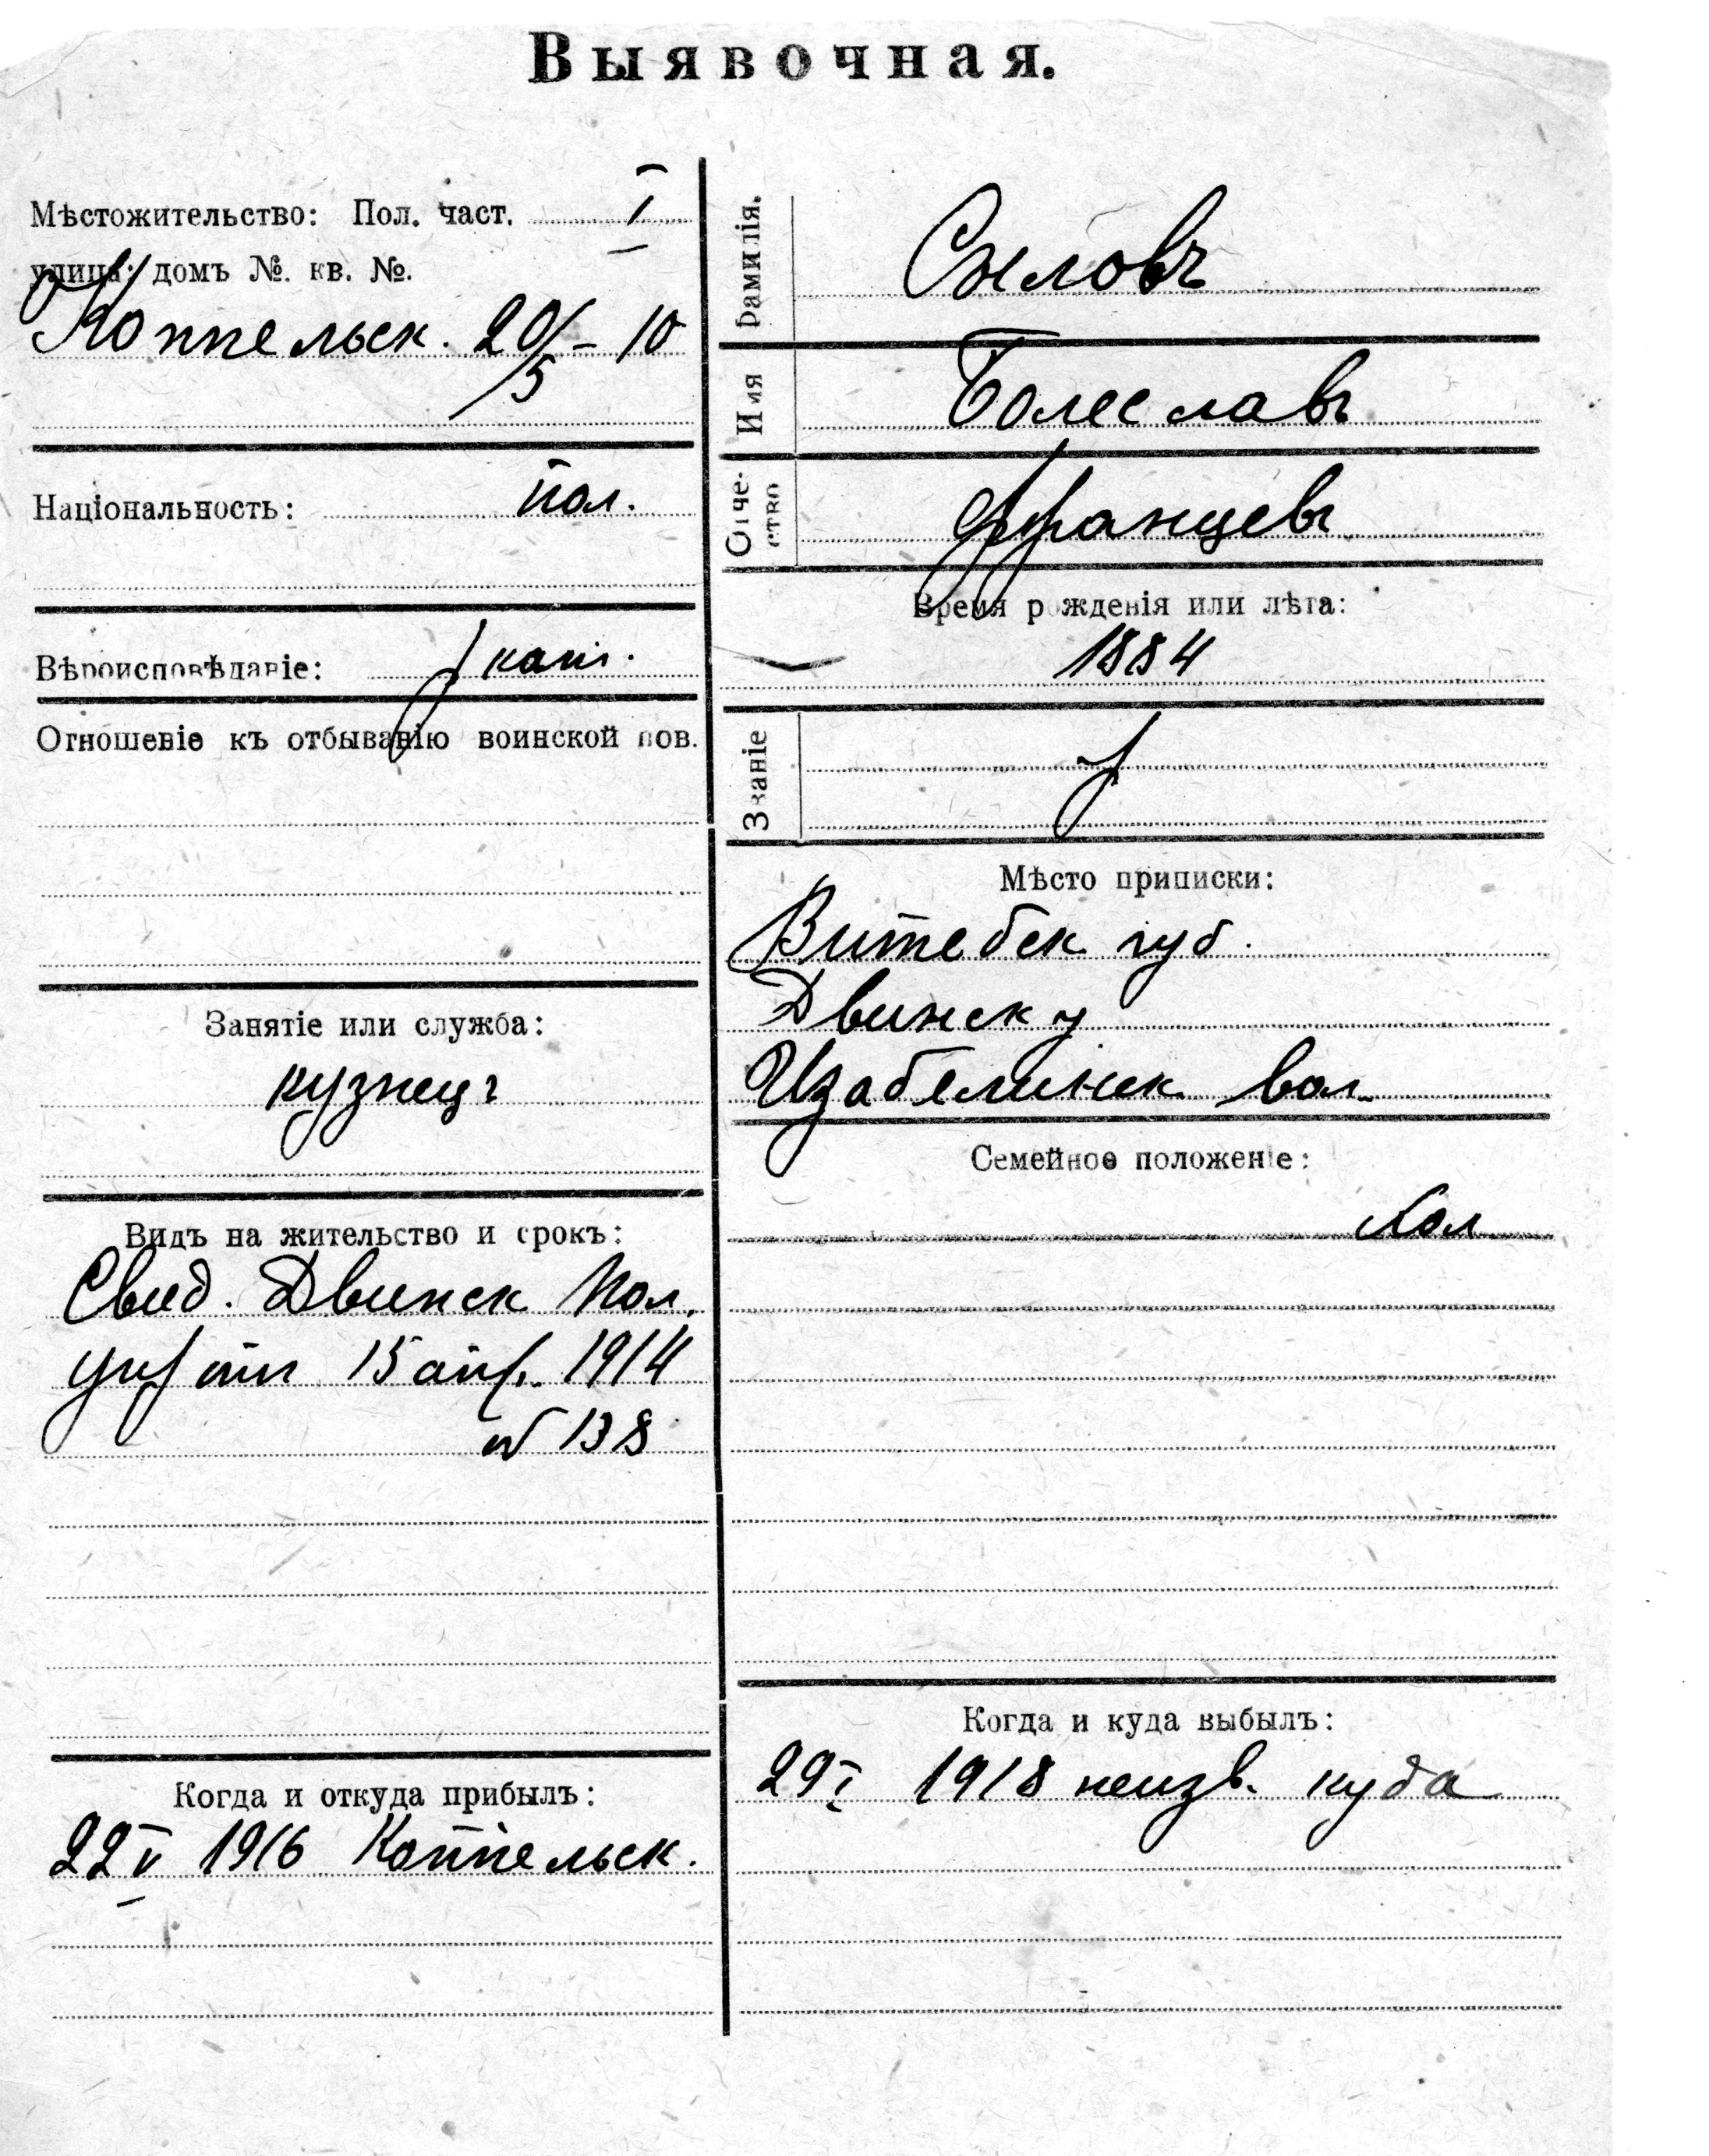 Выявочная.
Мѣстожительство: Пол. част. I
улица: домъ №. кв. №.
Коппельск. 20/5 - 10
Національность: пол.
Вѣроисповѣданіе: р кат.
Отношеніе къ отбыванію воинской пов.
Занятіе или служба:
кузнецъ
Видъ на жительство и срокъ:
Свид. Двинск Пол.
упр от 15 апр. 1914
№ 138
Когда и откуда прибылъ:
22 V 1916 Коппельск.
Фамилія. Сыловъ
Имя Болеславъ
Отчество Францевъ
Время рожденія или лѣта:
1884
Званіе
Мѣсто приписки:
Витебск губ.
Двинск у
Изабелинск вол.
Семейное положеніе:
Хол
Когда и куда выбылъ:
29 I 1918 неизв. куда